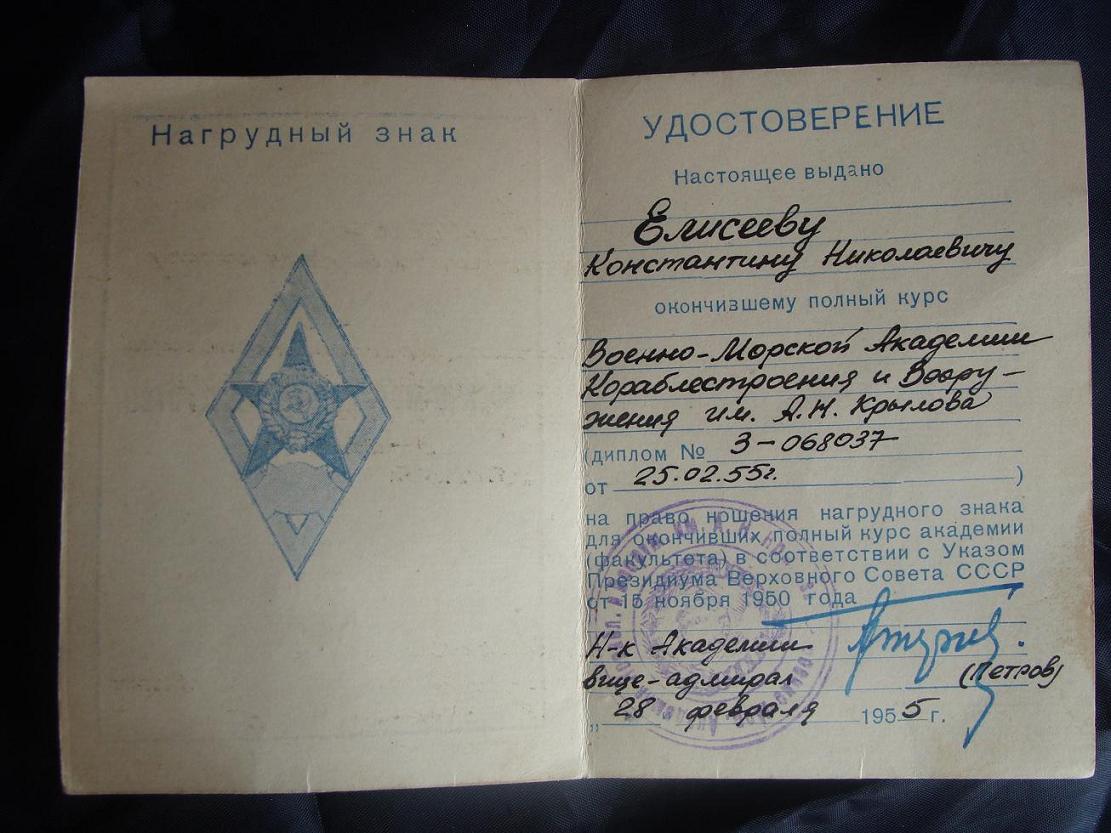 Нагрудный знак
УДОСТОВЕРЕНИЕ
Настоящее выдано
Елисееву
Константину Николаевичу
окончившему полный курс
Военно-Морской Академии
Кораблестроения и Воору-
жения им. А.Н. Крылова
(диплом № 3-068037
от 25.02.55г. )
на право ношения нагрудного знака
для окончивших полный курс академии
(факультета) в соответствии с Указом
Президиума Верховного Совета СССР
от 15 ноября 1950 года
Н-к Академии
вице-адмирал (Петров)
„ 28 февраля 1955 г.